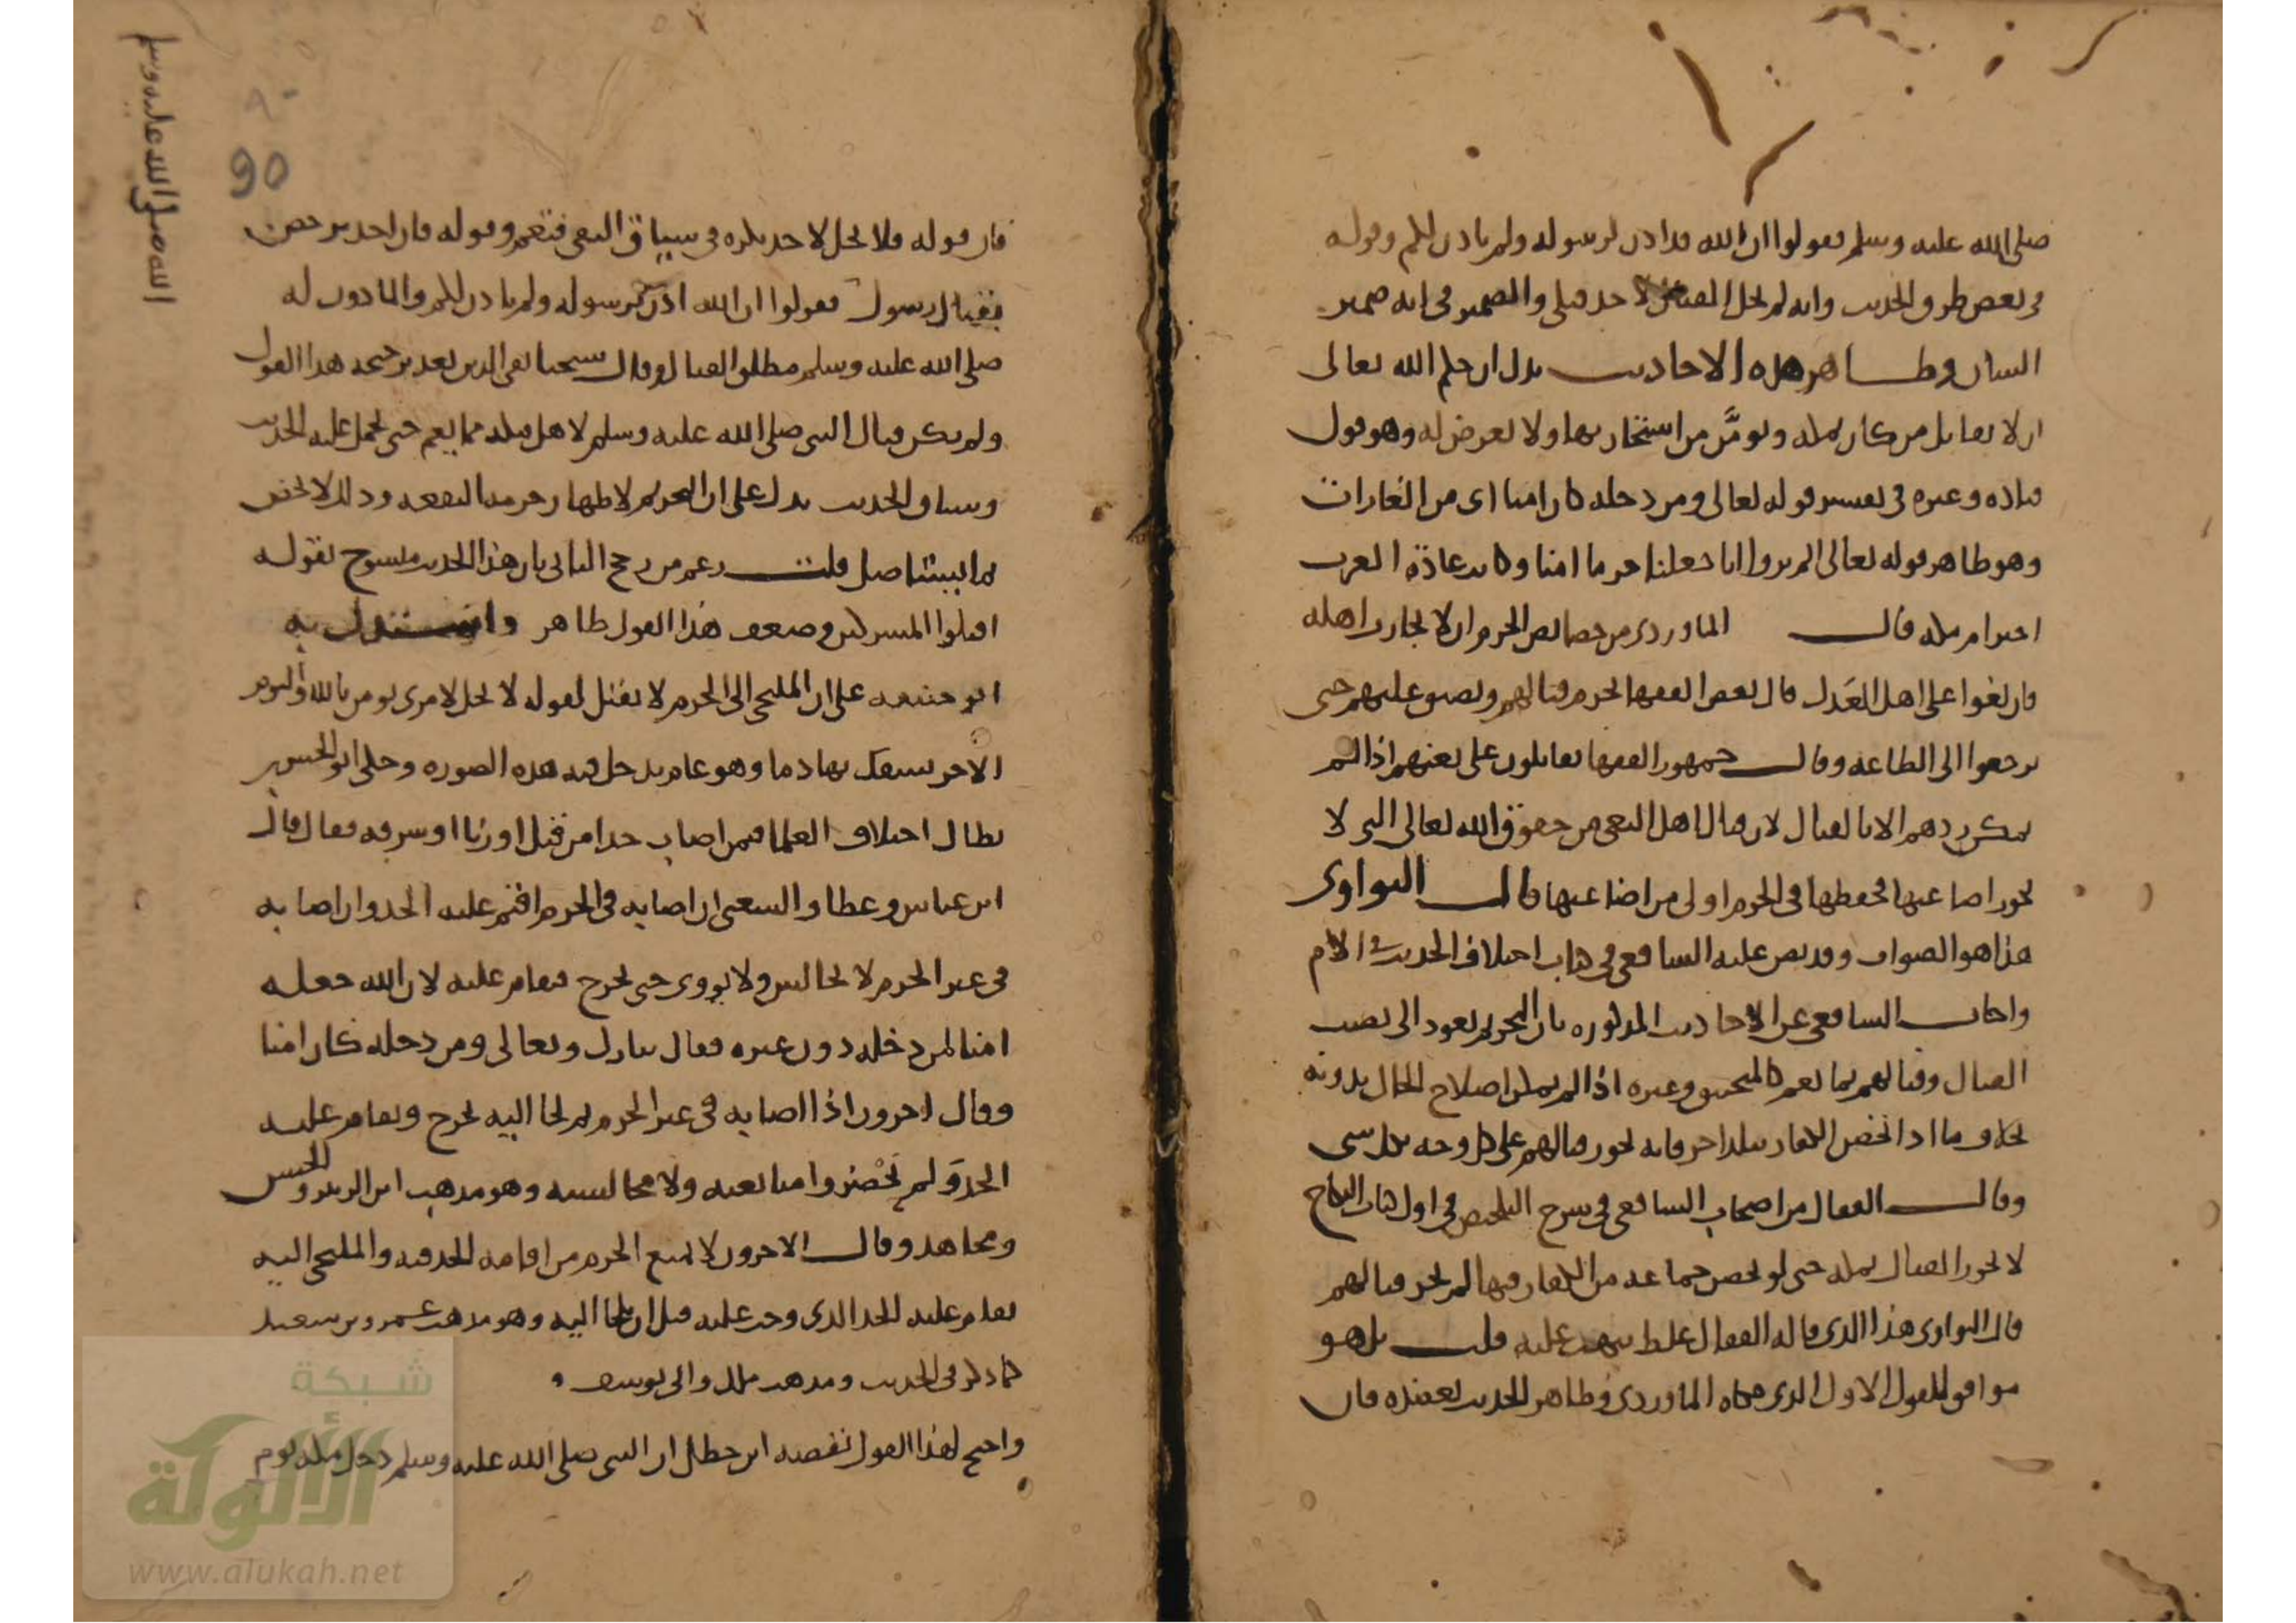 صلى الله عليه وسلم فقولوا ان الله قد اذن لرسوله ولم ياذن لكم وقوله
في بعض طرق الحديث وانه لم يحل القتال لاحد قبلي والضمير في انه ضمير
الشان وظاهر هذه الاحاديث يدل ان حكم الله تعالى
ان لا يقاتل من كان بمكة ويؤمَّن من استجار بها ولا يعرض له وهو قول
قتادة وغيره في تفسير قوله تعالى ومن دخله كان امنا اي من الغارات
وهو ظاهر قوله تعالى الم يروا انا جعلنا حرما امنا وكانت عادة العرب
احترام مكة قال الماوردي من خصائص الحرم ان لا يحارب اهله
فان بغوا على اهل العَدل قال بعض الفقها يحرم قتالهم ويضيق عليهم حتى
يرجعوا الى الطاعة وقال جمهور الفقها يقاتلون على بغيهم اذا لم
يمكن ردهم الا بالقتال لان قتال اهل البغي من حقوق الله تعالى التي لا
يجوز اضاعتها فحفظها في الحرم اولى من اضاعتها قال النواوي
هذا هو الصواب وقد نص عليه الشافعي في كتاب اختلاف الحديث والام
واجاب الشافعي عن الاحاديث المذكورة بان التحريم يعود الى نصب
القتال وقتالهم بما يعم كالمنجنيق وغيره اذا لم يمكن اصلاح الحال بدونه
بخلاف ما اذا تحصن الكفار ببلد اخر فانه يجوز قتالهم على كل وجه بكل شي
وقال القفال من اصحاب الشافعي في شرح التلخيص في اول كتاب النكاح
لا يجوز القتال بمكة حتى لو تحصن جماعة من الكفار فيها لم يجز قتالهم
قال النواوي هذا الذي قاله القفال غلط نبهت عليه قلت بل هو
موافق للقول الاول الذي حكاه الماوردي وظاهر الحديث يعضده فان
90
فان قوله فلا يحل لاحد نكرة في سياق النفي فتعم وقوله فان احد ترخص
بقتال رسول فقولوا ان الله اذن لرسوله ولم ياذن لكم والماذون له
صلى الله عليه وسلم مطلق القتال وقال شيخنا تقي الدين بعد ترجيحه هذا القول
ولم يكن قتال النبي صلى الله عليه وسلم لاهل مكة مما يعم حتى يحمل عليه الحديث
وسياق الحديث يدل على ان التحريم لاظهار حرمة البقعة وذلك لا يختص
بما يستاصل قلت زعم من رجح الثاني بان هذا الحديث منسوخ بقوله
اقتلوا المشركين وضعف هذا القول ظاهر واستدل به
ابو حنيفة على ان الملتجئ الى الحرم لا يقتل لقوله لا يحل لامرئ يومن بالله واليوم
الاخر يسفك بها دما وهو عام يدخل فيه هذه الصورة وحكى ابو الحسن بن
بطال اختلاف العلما فيمن اصاب حدا من قتل او زنا او سرقة فقال قال
ابن عباس وعطا والشعبي ان اصابه في الحرم اقيم عليه الحد وان اصابه
في غير الحرم لا يجالس ولا يووى حتى يخرج فيقام عليه لان الله جعله
امنا لمن دخله دون غيره فقال تبارك وتعالى ومن دخله كان امنا
وقال اخرون اذا اصابه في غير الحرم ثم لجا اليه يخرج ويقام عليه
الحد ولم يَحْضروا مبايعته ولا مجالسته وهو مذهب ابن الزبير والحسن
ومجاهد وقال الاخرون لا يمنع الحرم من اقامة الحد فيه والملتجئ اليه
يقام عليه الحد الذي وجب عليه قبل ان يلجا اليه وهو مذهب عمرو بن سعيد
كما ذكر في الحديث ومذهب ملك وابي يوسف
واحتج لهذا القول بقصة ابن خطل ان النبي صلى الله عليه وسلم دخل مكة يوم
الله صلى الله عليه وسلم
شبكة
الألوكة
www.alukah.net